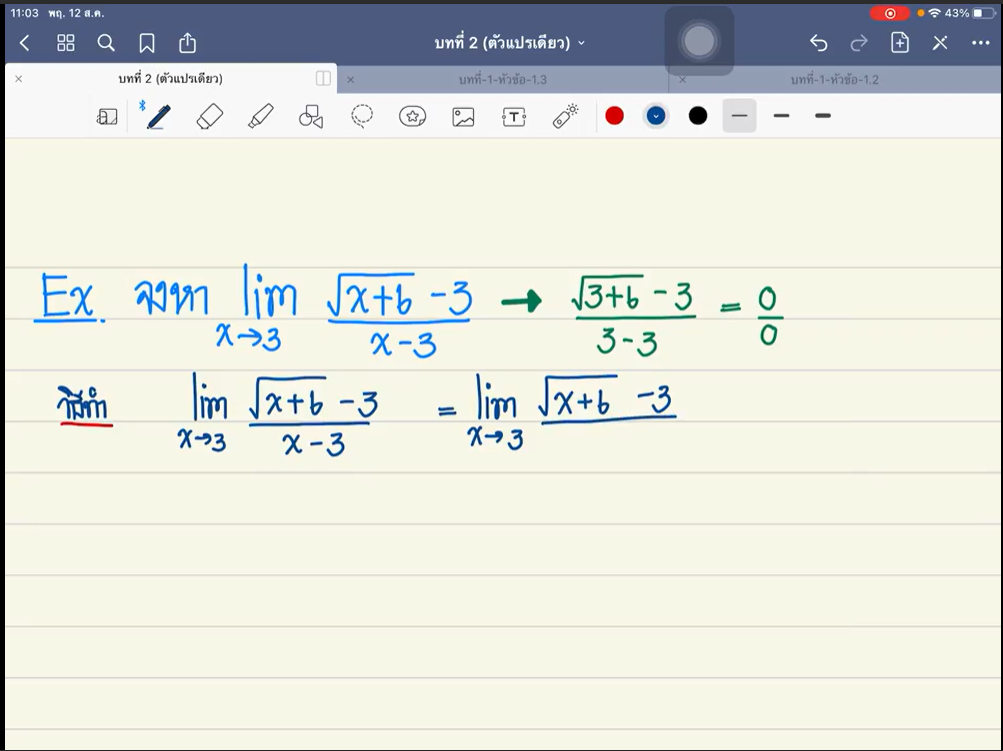 11:03 พฤ. 12 ส.ค. 43%
บทที่ 2 (ตัวแปรเดียว)
บทที่ 2 (ตัวแปรเดียว) บทที่-1-หัวข้อ-1.3 บทที่-1-หัวข้อ-1.2
Ex. จงหา lim x→3 (√(x+6) - 3)/(x-3) → (√(3+6) - 3)/(3-3) = 0/0
วิธีทำ lim x→3 (√(x+6) - 3)/(x-3) = lim x→3 √(x+6) - 3